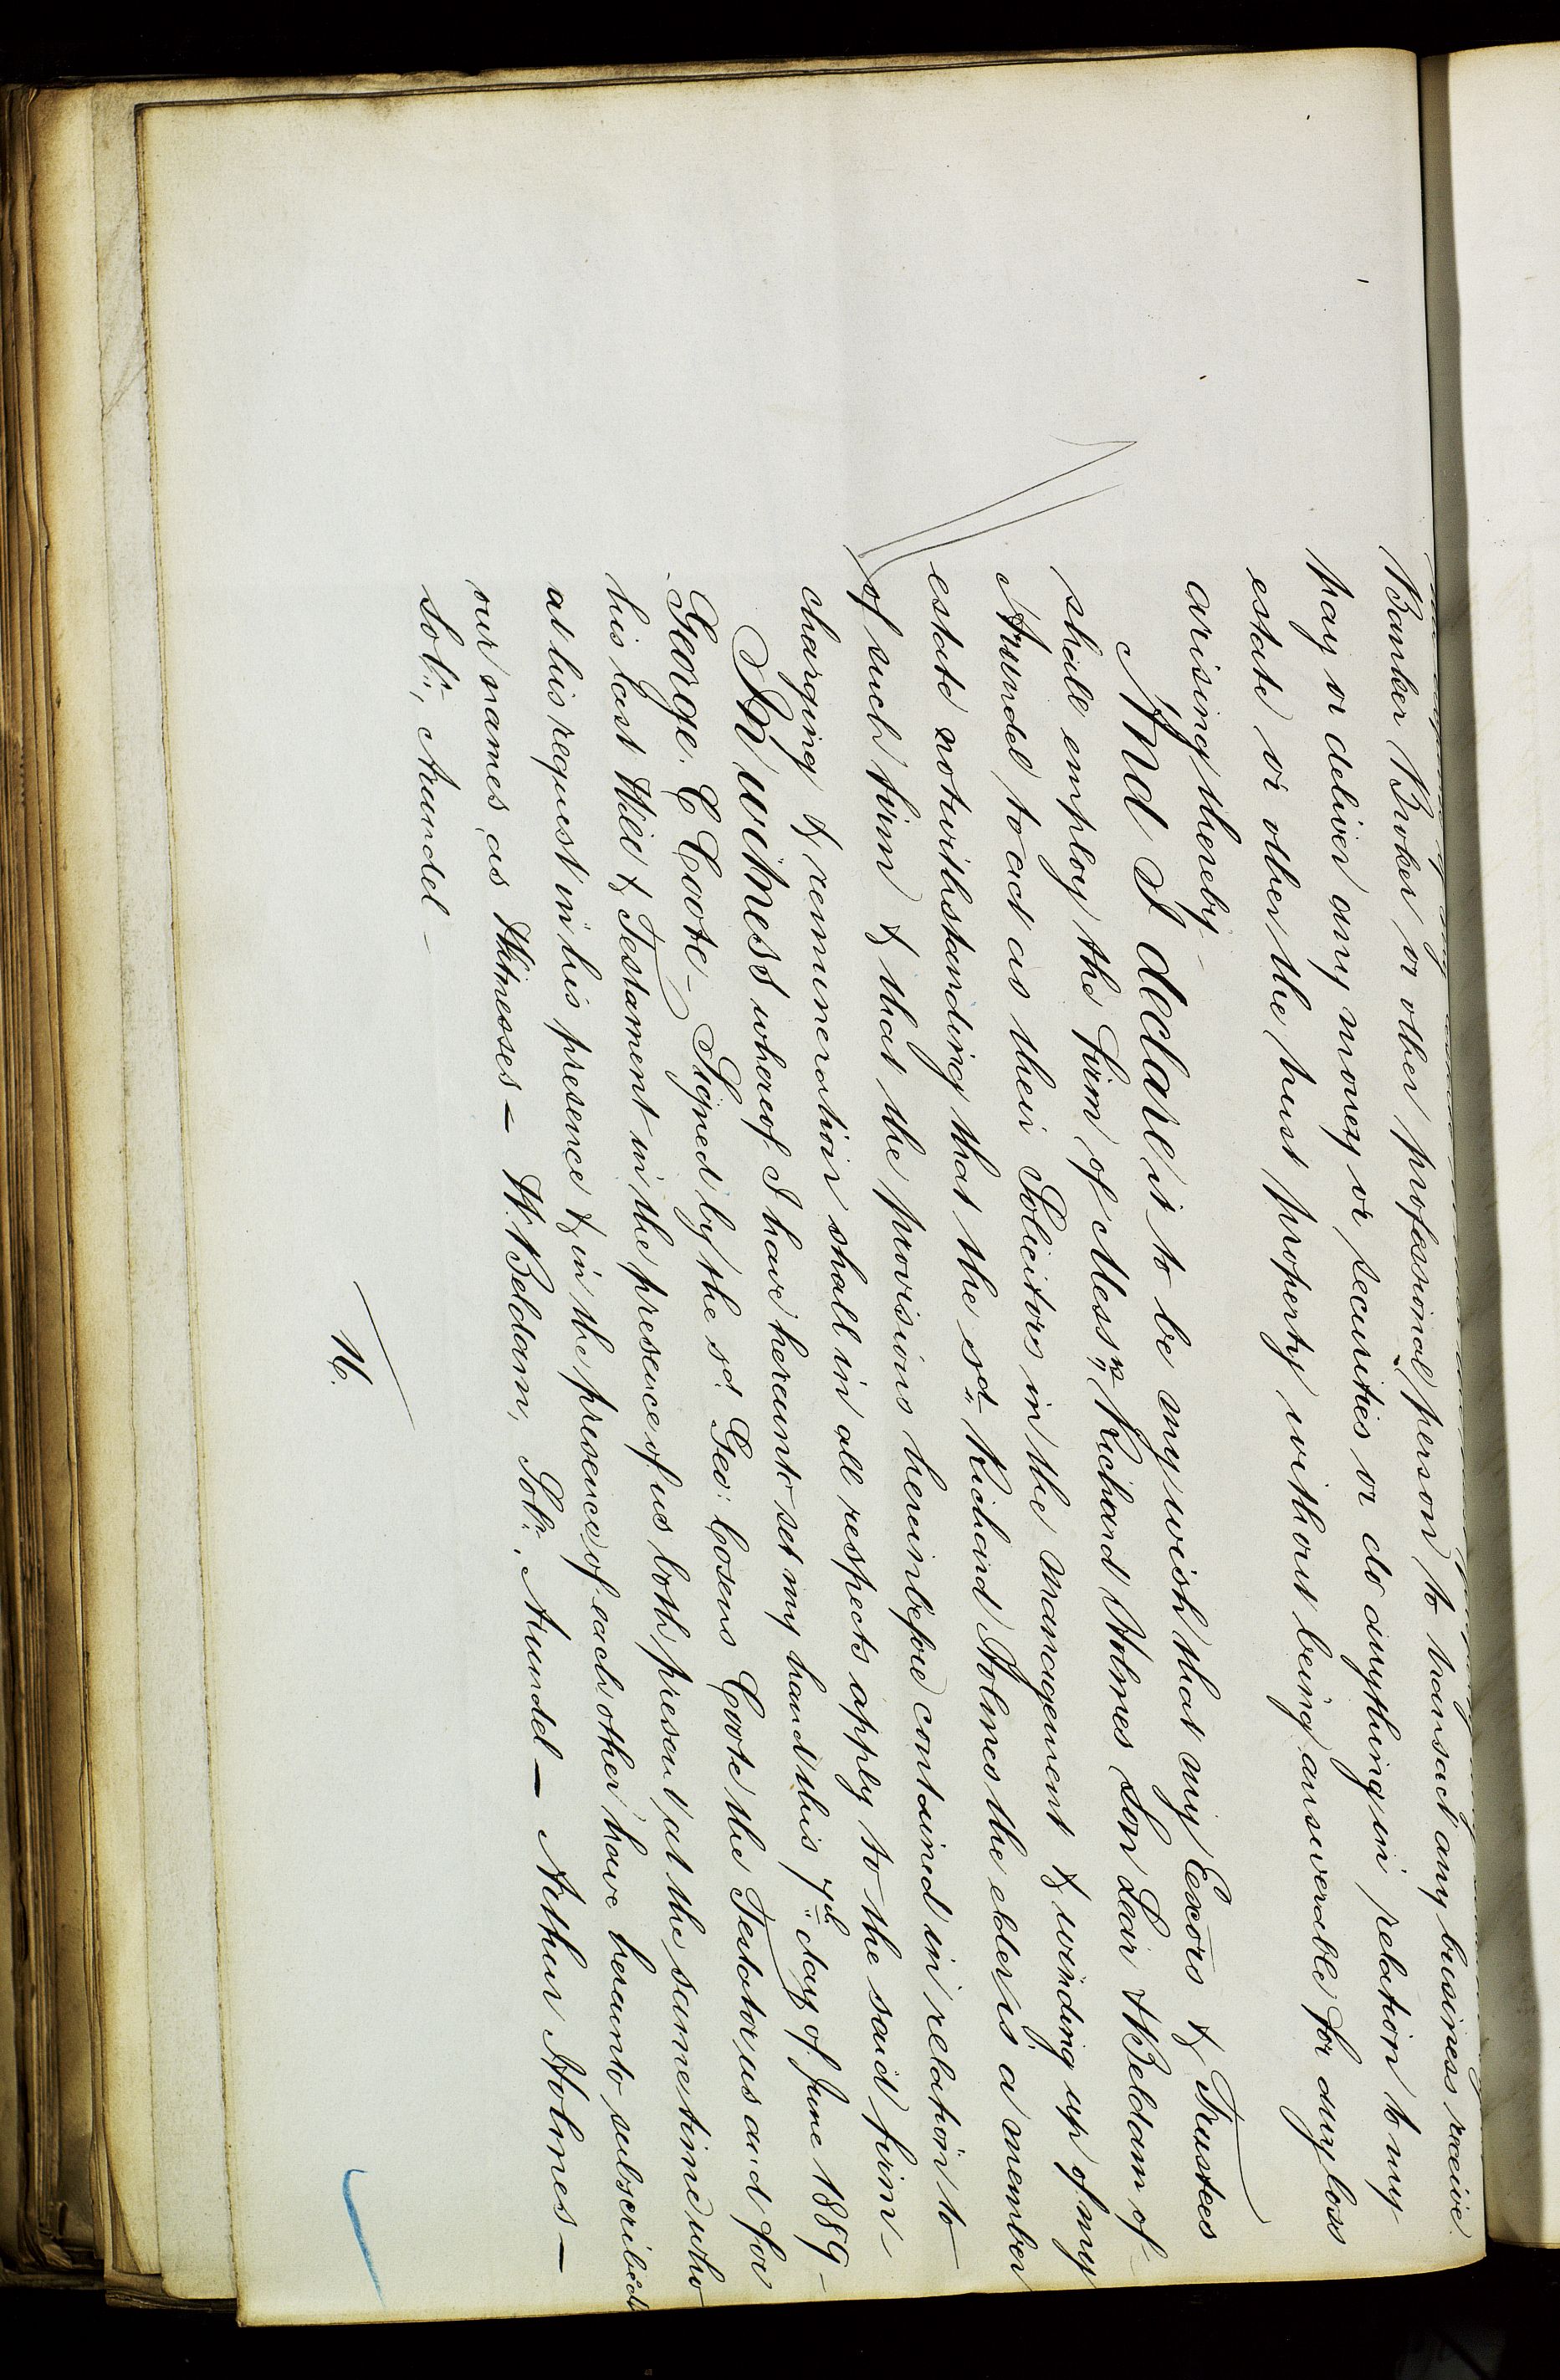 Banker Broker or other professional person to transact any business receive
pay or deliver any money or securities or do anything in relation to my
estate or other the trust property without being answerable for any loss
arising thereby –
And I declare it to be my wish that my Exors & Trustees
shall employ the firm of Messrs Richard Holmes Son Lear & Beldam of
Arundel to act as their Solicitors in the management & winding up of my
estate notwithstanding that the sd Richard Holmes the elder is a member
of such firm & that the provisions hereinbefore contained in relation to
charging & remuneration shall in all respects apply to the said firm –
In witness whereof I have hereunto set my hand this 7th day of June 1889 –
George C Coote – Signed by the sd Geo: Cosens Coote the Testator as and for
his last Will & Testament in the presence of us both present at the same time who
at his request in his presence & in the presence of each other have hereunto subscribed
our names as Witnesses – W. Beldam, Solr, Arundel – Arthur Holmes –
Solr, Arundel –
16.